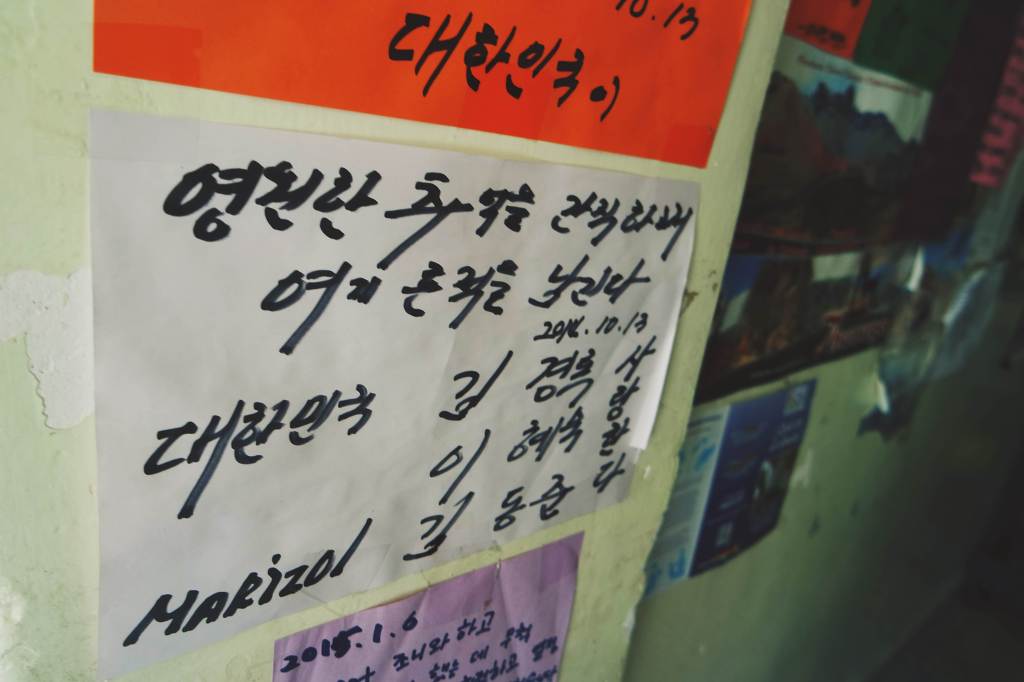 10.13
대한민국이
영원한 추억을 간직하며
여기 흔적을 남긴다
2014.10.13
대한민국 김경록
이혜숙
김동준
사랑한다
MARIZOL
2015.1.6
조니와 하고
했는데